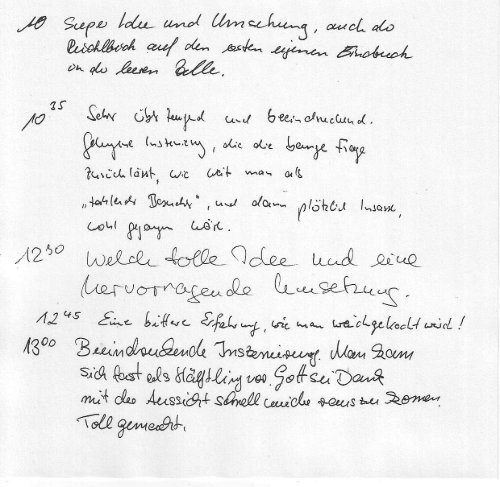 10 Super Idee und Umsetzung, auch der
Rückblick auf den ersten eigenen Eindruck
in der leeren Zelle.
10 35 Sehr überzeugend und beeindruckend.
Gelungene Inszenierung, die die bange Frage
zurücklässt, wie weit man als
„zahlender Besucher“, und dann plötzlich Insasse,
wohl gegangen wäre.
12 30 Welch tolle Idee und eine
hervorragende Umsetzung.
12 45 Eine bittere Erfahrung, wie man weichgekocht wird!
13 00 Beeindruckende Inszenierung. Man kam
sich fast als Häftling vor. Gott sei Dank
mit der Aussicht schnell wieder raus zu komen.
Toll gemacht.